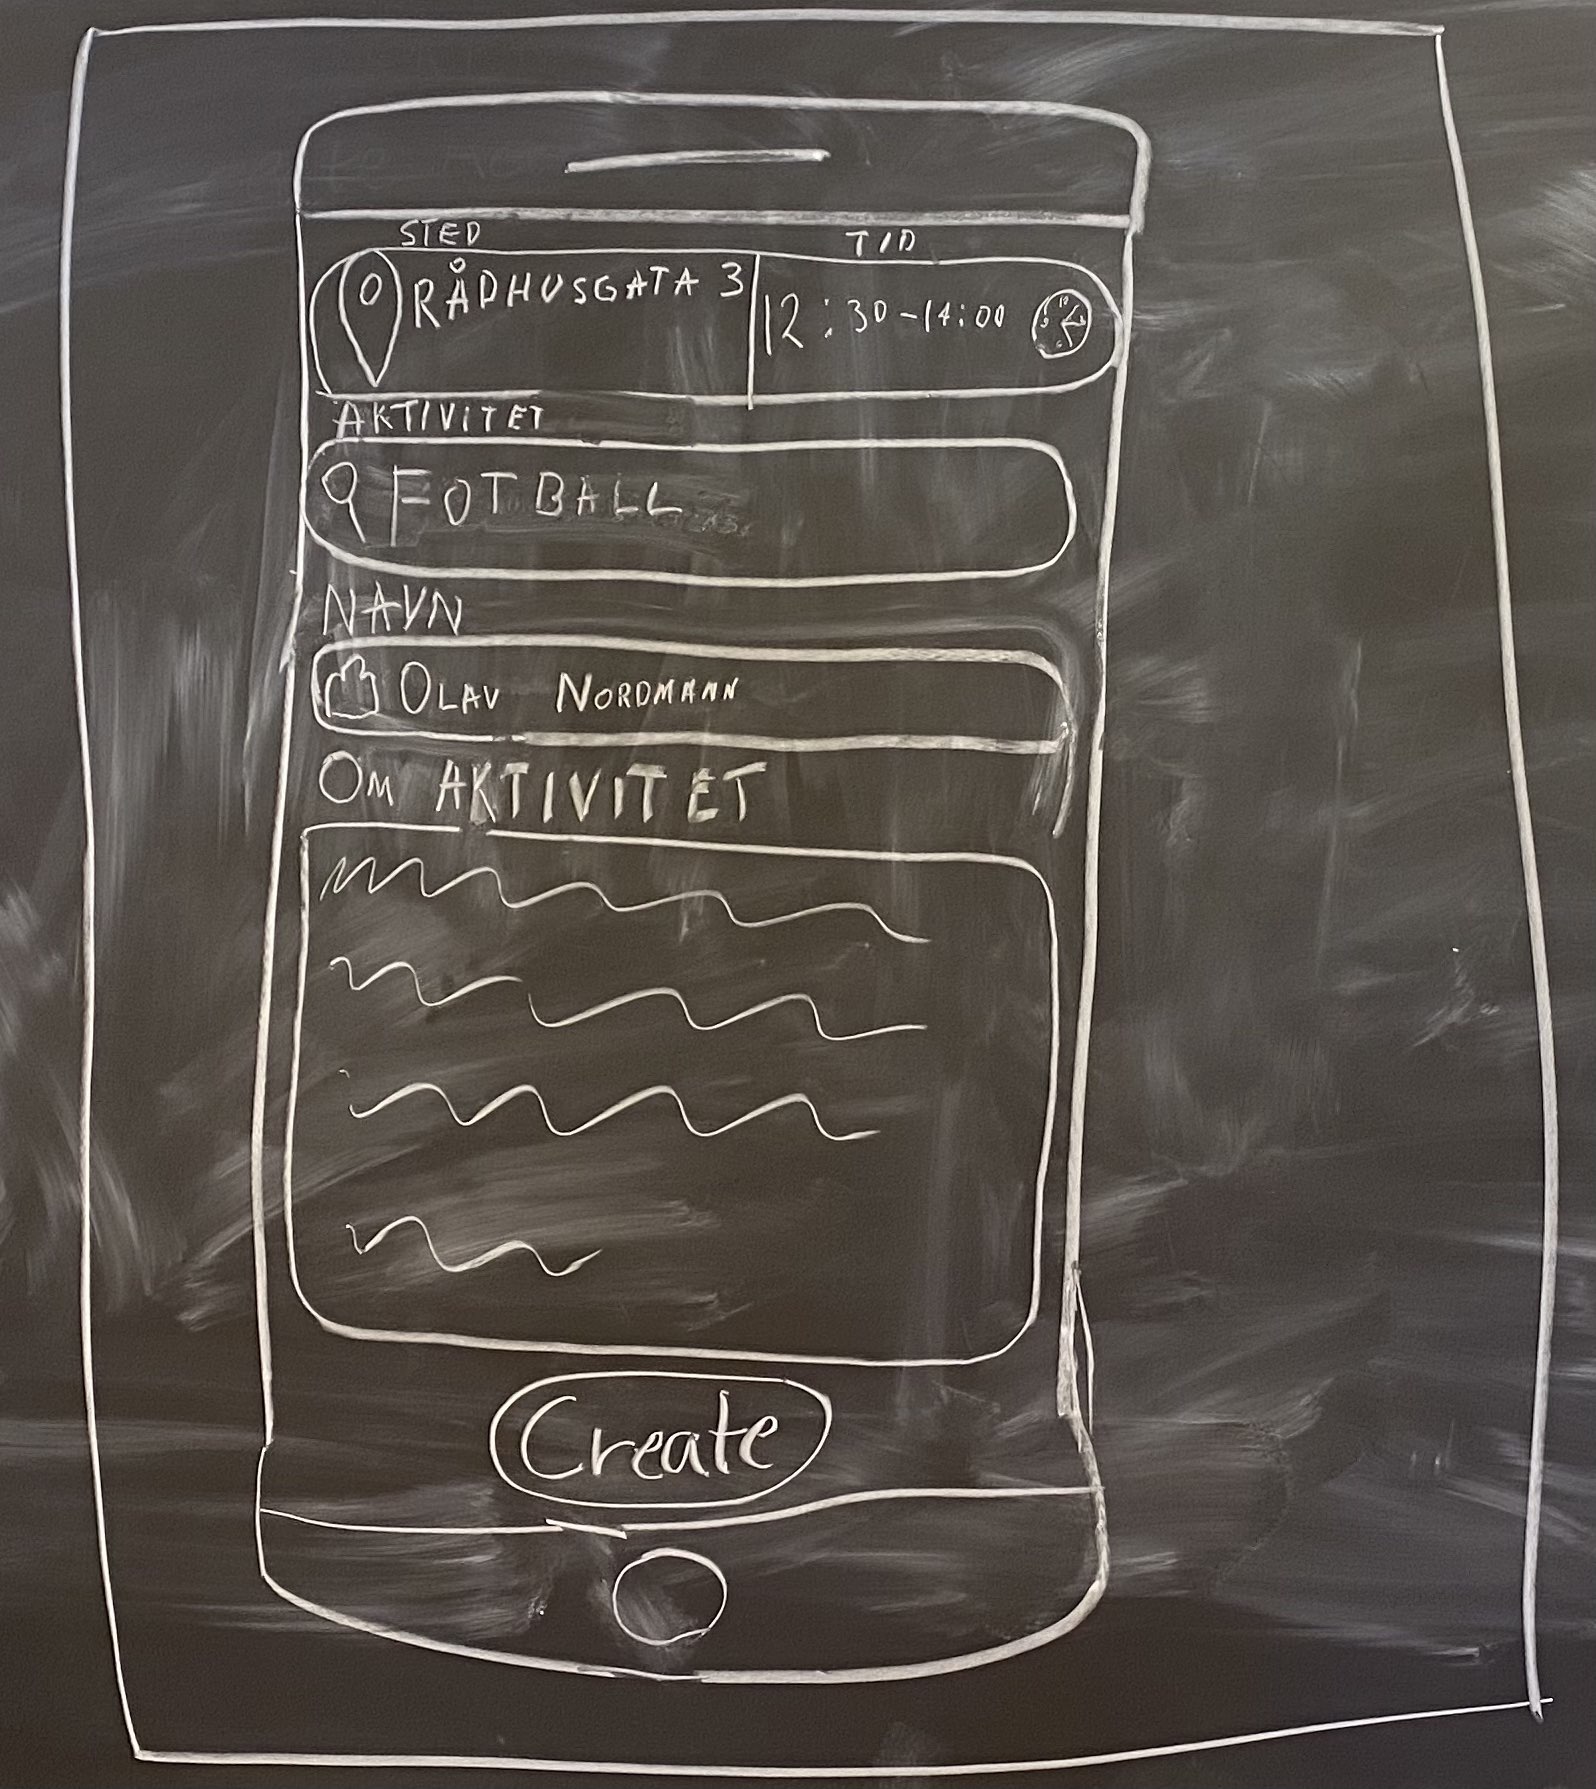 STED TID
RÅDHUSGATA 3 12:30-14:00
AKTIVITET
FOTBALL
NAVN
OLAV NORDMANN
OM AKTIVITET
Create